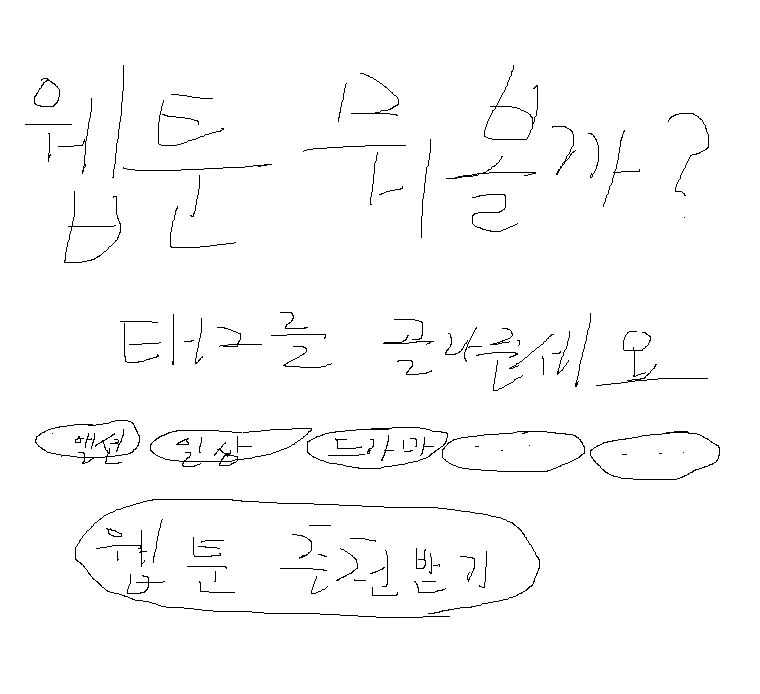 웹툰 뭐볼까?
태그를 골라줍세요
액션 일상 드라마 ... ...
웹툰 추천받기